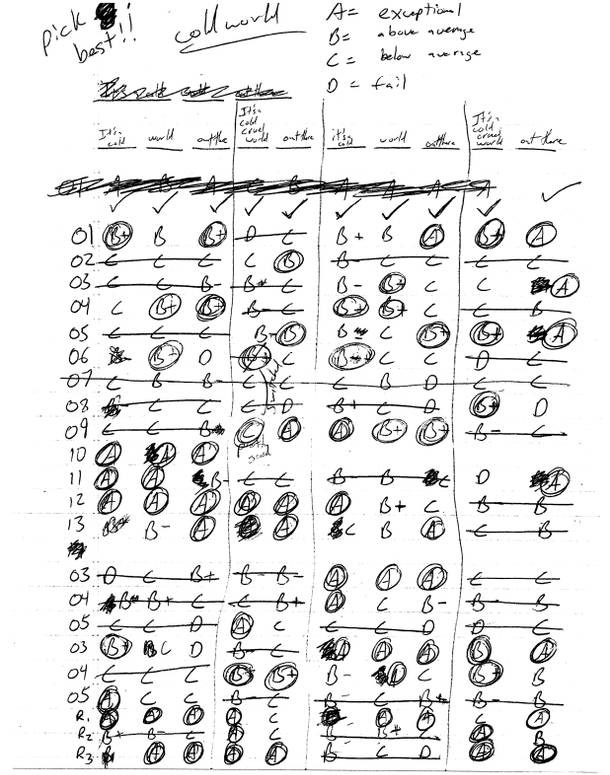 pick best!!
cold world
A = exceptional
B = above average
C = below average
D = fail
It's cold world out there It's cold cruel world out there it's cold world out there It's cold cruel world out there
✓ ✓ ✓ ✓ ✓ ✓ ✓ ✓ ✓ ✓
01 B+ B B+ D C B+ B A B+ A
02 C C C C B B- C C C C
03 C C B- B C B- B+ C C A
04 C B+ B+ B- C B+ B+ C C B
05 C C C B- B B C B+ B+ A
06 B+ D B+ C B C C D C
07 C B B C C C B D C C
08 C C C D B+ C D B+ D
09 C C B C A A B+ B+ B- C
10 A A A
11 A A B- C C B B C D A
12 A A A A A A B+ C B B
13 B- A A C B A C B
03 D C B+ B- B- A A A C C
04 B B+ C C B+ A C B- B B
05 C C D A C C C D D C
03 B+ C D B- C A A A B A
04 C C C B+ B+ B- D C B+ B
05 A C C B C C C B+ B B
R1 A A A A C A A C A
R2 B+ B- C A C B B+ C A B
R3 A A A A B C D A A